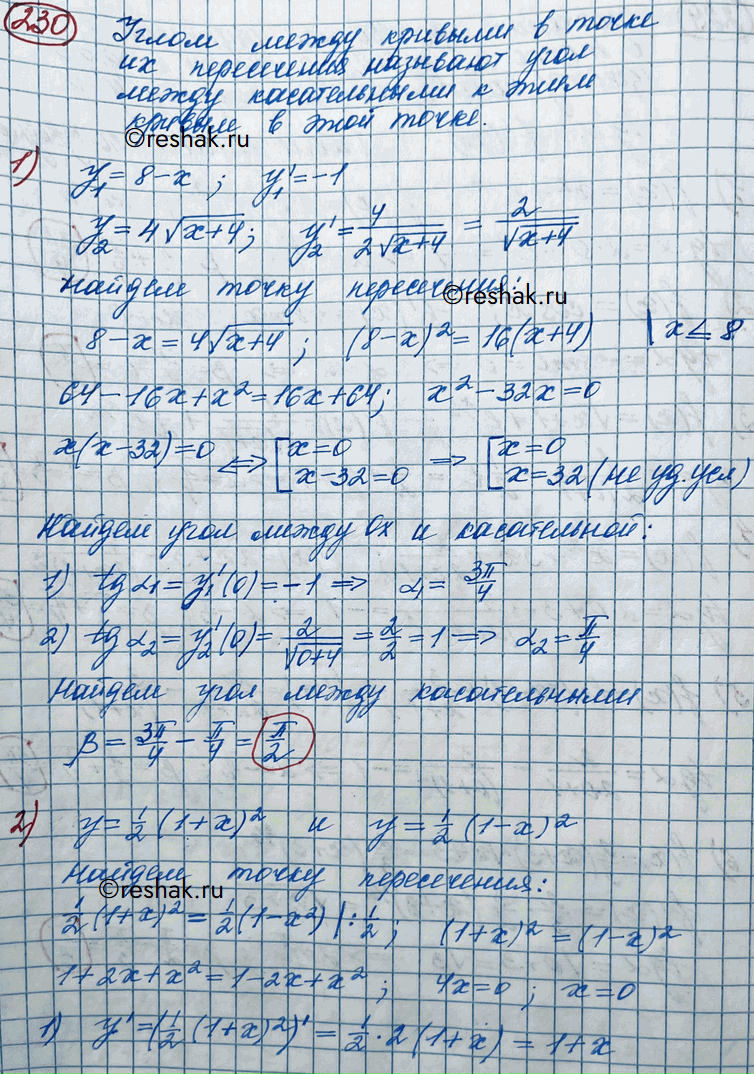 230
Углом между кривыми в точке
их пересечения называют угол
между касательными к этим
кривым в этой точке.
©reshak.ru
1) y₁=8-x ; y₁'=-1
y₂=4√(x+4); y₂'=4/(2√(x+4)) = 2/√(x+4)
Найдем точку пересечения:
©reshak.ru
8-x=4√(x+4) ; (8-x)²=16(x+4) | x≤8
64-16x+x²=16x+64; x²-32x=0
x(x-32)=0 ⟺ [x=0 x-32=0 ⟹ [x=0 x=32 (не уд. усл)
Найдем угол между Ox и касательной:
1) tg α₁=y₁'(0)=-1 ⟹ α₁= 3π/4
2) tg α₂=y₂'(0)=2/√(0+4)=2/2=1 ⟹ α₂=π/4
Найдем угол между касательными
β=3π/4-π/4=π/2
2) y=½(1+x)² и y=½(1-x)²
Найдем точку пересечения:
©reshak.ru
½(1+x)²=½(1-x²) |:½ ; (1+x)²=(1-x)²
1+2x+x²=1-2x+x² ; 4x=0 ; x=0
1) y'=(½(1+x)²)'=½·2(1+x)=1+x